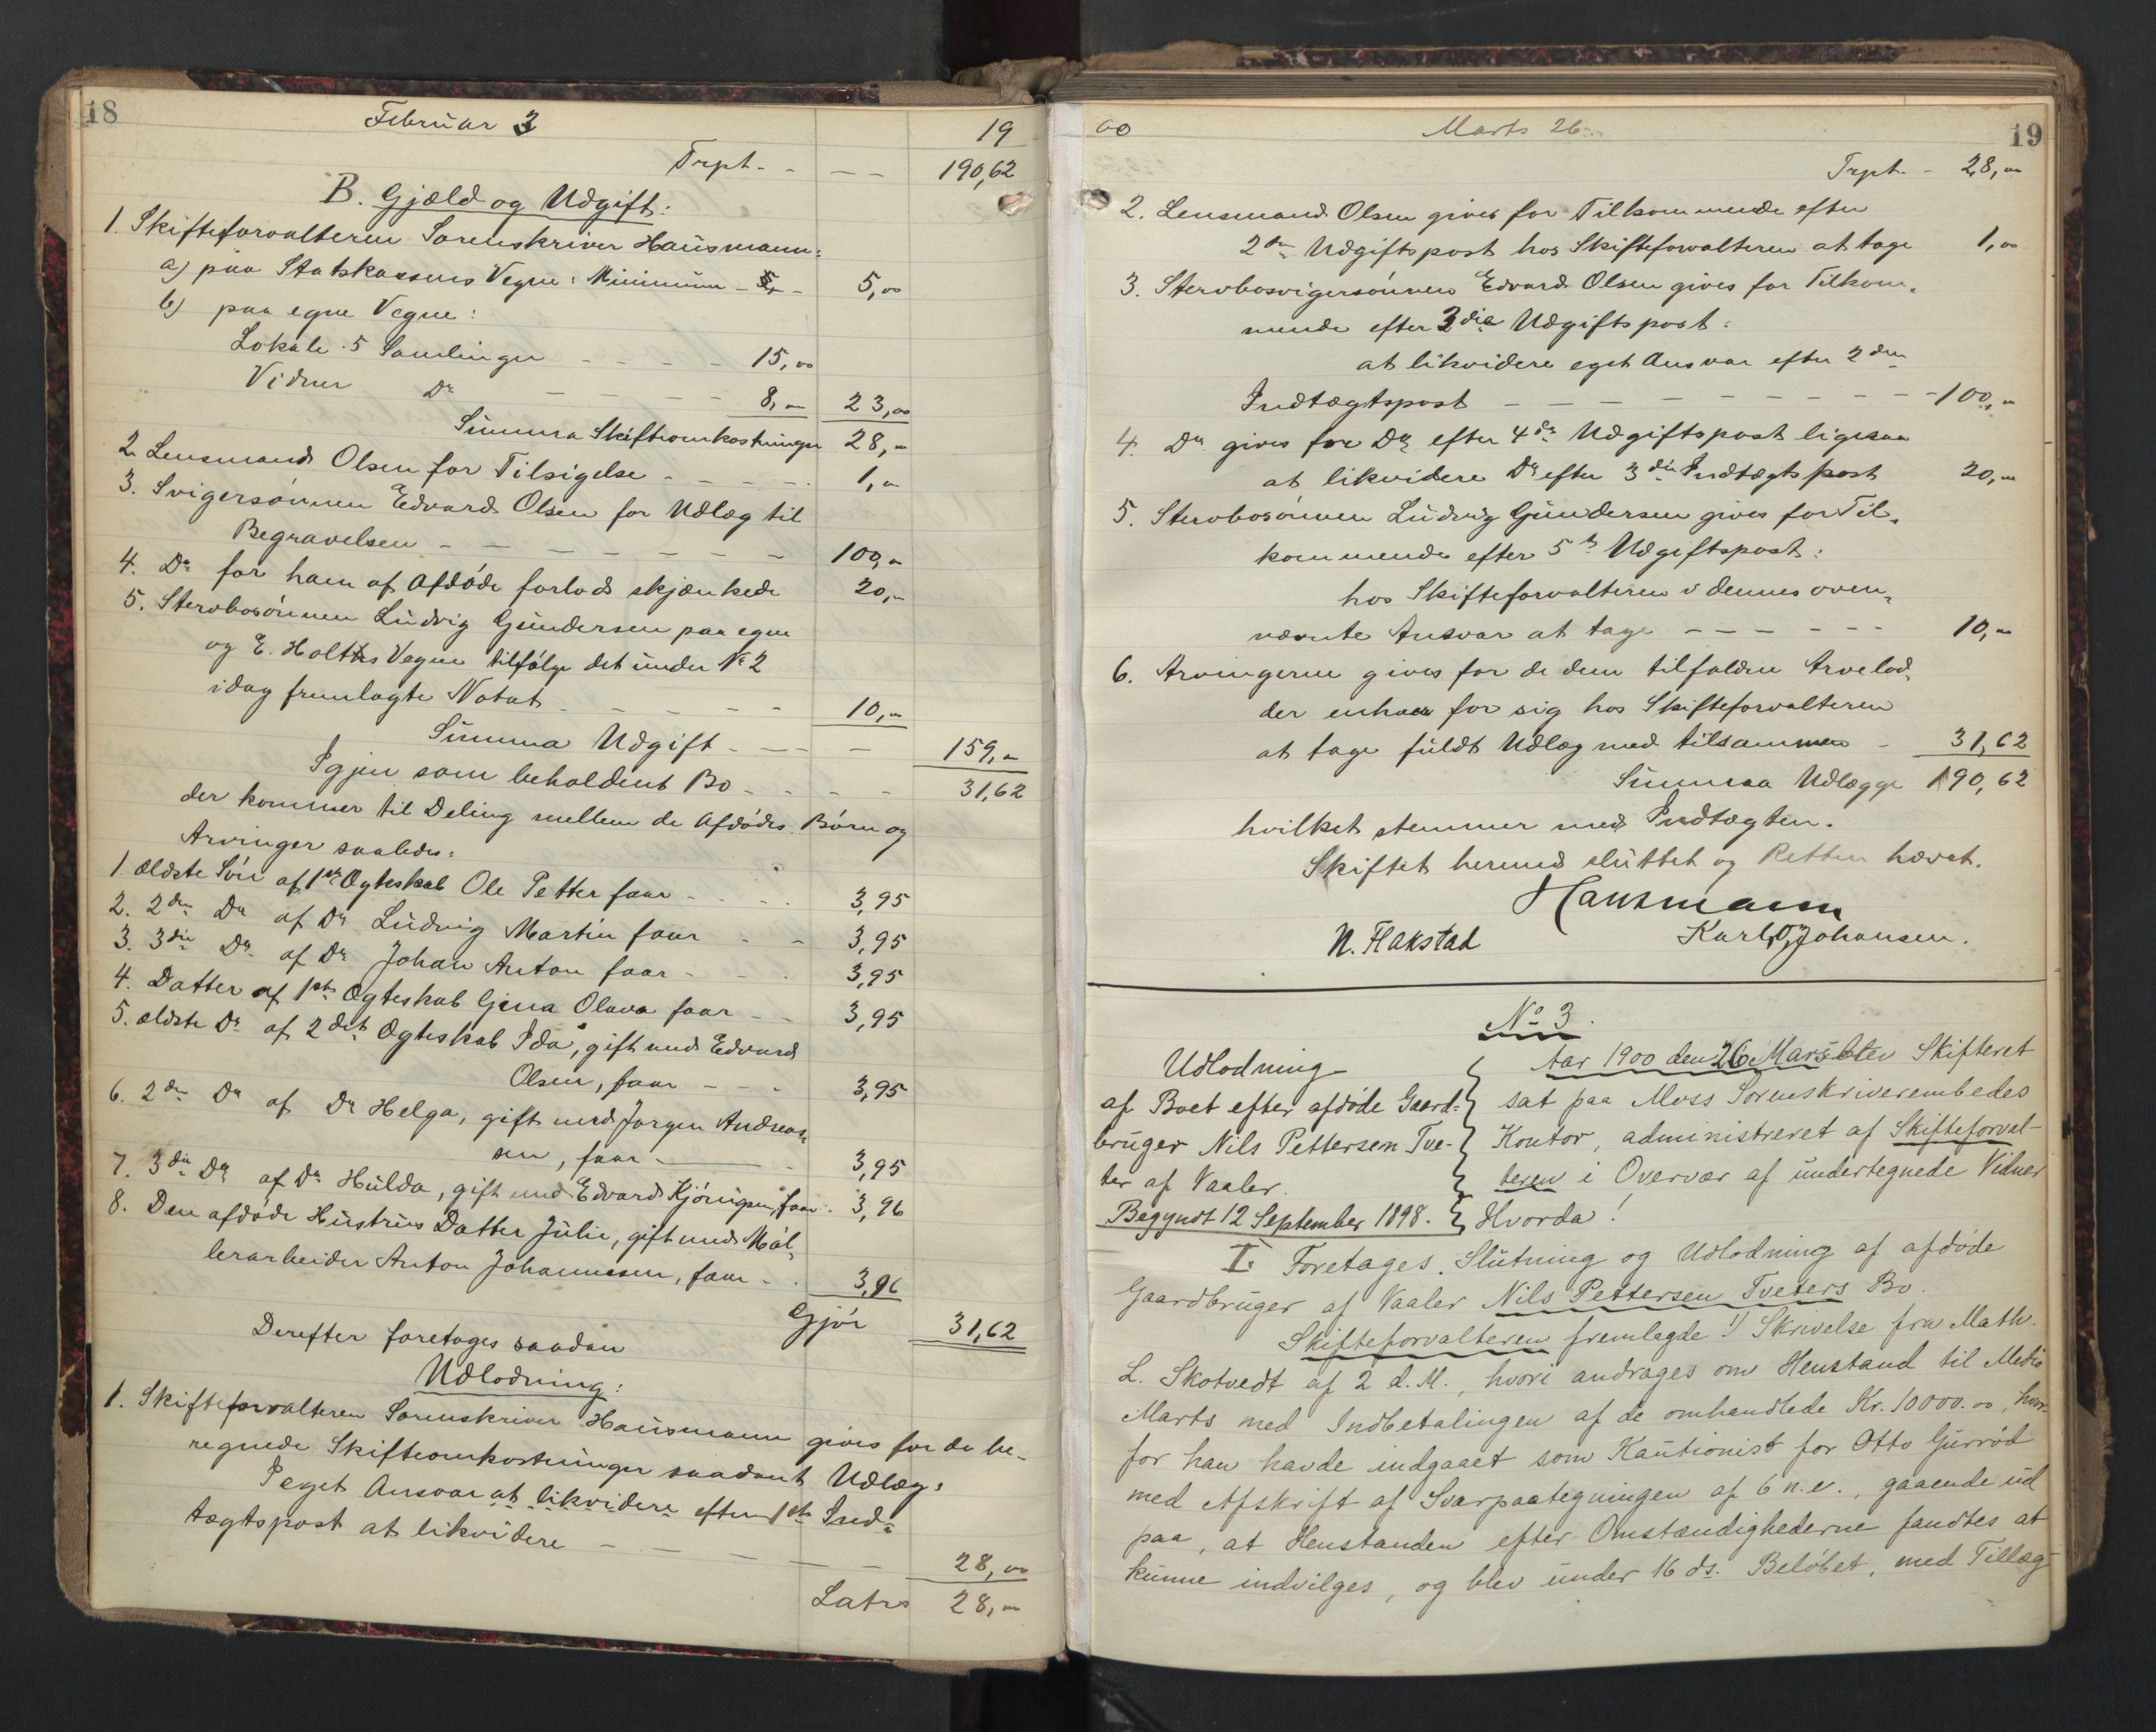 18
Februar 3
19
Trpt. - - - 190,62
B. Gjæld og Udgift:
1. Skifteforvalteren Sorenskriver Hausmann:
a) paa Statskassens Vegne: Minimum - 5,- - 5,00
b) paa egne Vegne:
Lokale 5 Samlinger - - - - 15,00
Vidner Do - - - - 8,- 23,00
Summa Skifteomkostninger 28,-
2. Lensmand Olsen for Tilsigelse - - - - 1,-
3. Svigersønnen Edvard Olsen for Udlæg til
Begravelsen - - - - - - - 100,-
4. Do for ham af Afdøde forlods skjænkede 20,-
5. Stervbosønnen Ludvig Gundersen paa egne
og E. Holths Vegne tilfølge det under No 2
idag fremlagte Notat - - - - - 10,-
Summa Udgift - - - 159,-
Igjen som beholdent Bo - - - - 31,62
der kommer til Deling mellem de Afdødes Børn og
Arvinger saaledes:
1. ældste Søn af 1ste Ægteskab Ole Petter faar - - - - 3,95
2. 2den Do af Do Ludvig Martin faar - - 3,95
3. 3die Do af Do Johan Anton faar - - - 3,95
4. Datter af 1ste Ægteskab Gina Olava faar - - 3,95
5. ældste Dr af 2det Ægteskab Ida, gift med Edvard
Olsen, faar - - - 3,95
6. 2den Dr af Do Helga, gift med Jørgen Andreas-
sen, faar - - 3,95
7. 3die Dr af Do Hulda, gift med Edvard Kjønigsen, faar - 3,96
8. Den afdøde Hustrus Datter Julie, gift med Møl-
lerarbeider Anton Johannessen, faar - - 3,96
Gjør 31,62
Derefter foretages saadan
Udlodning:
1. Skifteforvalteren Sorenskriver Hausmann gives for de be-
regnede Skifteomkostninger saadant Udlæg:
I eget Ansvar at likvidere efter 1ste Ind-
tægtspost at likvidere - - - - - 28,00
Latus 28,-
00
Marts 26.
19
Trpt. - 28,00
2. Lensmand Olsen gives for Tilkommende efter
2den Udgiftspost hos Skifteforvalteren at tage 1,00
3. Stervbosvigersønnen Edvard Olsen gives for Tilkom-
mende efter 3die Udgiftspost:
at likvidere eget Ansvar efter 2den
Indtægtspost - - - - - - - - - 100,-
4. Do gives for Do efter 4de Udgiftspost ligesaa
at likvidere Do efter 3die Indtægtspost 20,-
5. Stervbosønnen Ludvig Gundersen gives for Til-
kommende efter 5te Udgiftspost:
hos Skifteforvalteren i dennes oven-
nævnte Ansvar at tage - - - - - - 10,-
6. Arvingerne gives for de dem tilfaldne Arvelod-
der enhver for sig hos Skifteforvalteren
at tage fuldt Udlæg med tilsammen - 31,62
Summa Udlægge 190,62
hvilket stemmer med Indtægten.
Skiftet hermed sluttet og Retten hævet.
Hausmann
N. Flakstad Karl O. Johansen.
No 3.
Udlodning
af Boet efter afdøde Gaard-
bruger Nils Pettersen Tve-
ter af Vaaler.
Begyndt 12 September 1898.
Aar 1900 den 26 Mars blev Skifteret
sat paa Moss Sorenskriverembedes
Kontor, administreret af Skifteforval-
teren i Overvær af undertegnede Vidner
Hvorda!
I. Foretages Slutning og Udlodning af afdøde
Gaardbruger af Vaaler Nils Pettersen Tveters Bo.
Skifteforvalteren fremlagde 1) Skrivelse fra Math.
L. Skotvedt af 2 d.M., hvori andrages om Henstand til Medio
Marts med Indbetalingen af de omhandlede Kr. 10000.00, hvor-
for han havde indgaaet som Kautionist for Otto Gurrød
med Afskrift af Svarpaategningen af 6 n.e., gaaende ud
paa, at Henstanden efter Omstændighederne fandtes at
kunne indvilges, og blev under 16 ds. Beløbet, med Tillæg